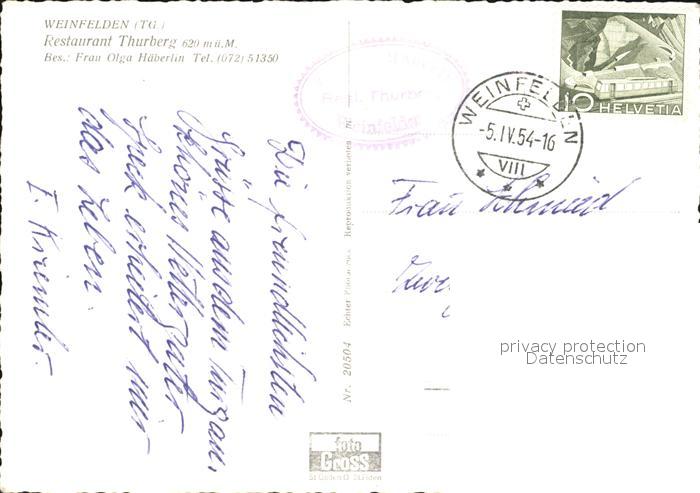 WEINFELDEN (TG.)
Restaurant Thurberg 620 m ü. M.
Bes.: Frau Olga Häberlin Tel. (072) 51350
Rest. Thurberg
Weinfelden
WEINFELDEN
-5.IV.54-16
VIII
10 HELVETIA
Die freundlichsten
Grüsse aus dem Turgau.
schönes Wetter guter
Luft erheitert mir
das Leben.
Frau Schmid
privacy protection
Datenschutz
Nr. 20504 Echter Reproduktion verboten
foto
Gross
St. Gallen